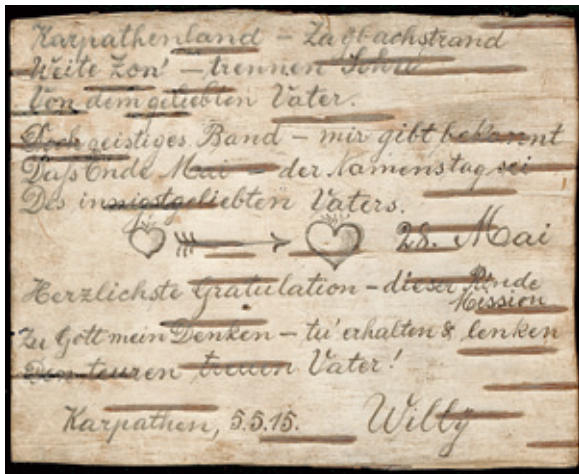 Karpathenland – Zagbachstrand
Weite Zon' – trennen Sohn
Von dem geliebten Vater.
Doch geistiges Band – mir gibt bekannt
Daß Ende Mai – der Namenstag sei
Des innigstgeliebten Vaters.
28. Mai
Herzlichste Gratulation – dieser Rinde
Mission
Zu Gott mein Denken – tu' erhalten & lenken
Den teuren treuen Vater!
Karpathen, 5.5.15. Willy